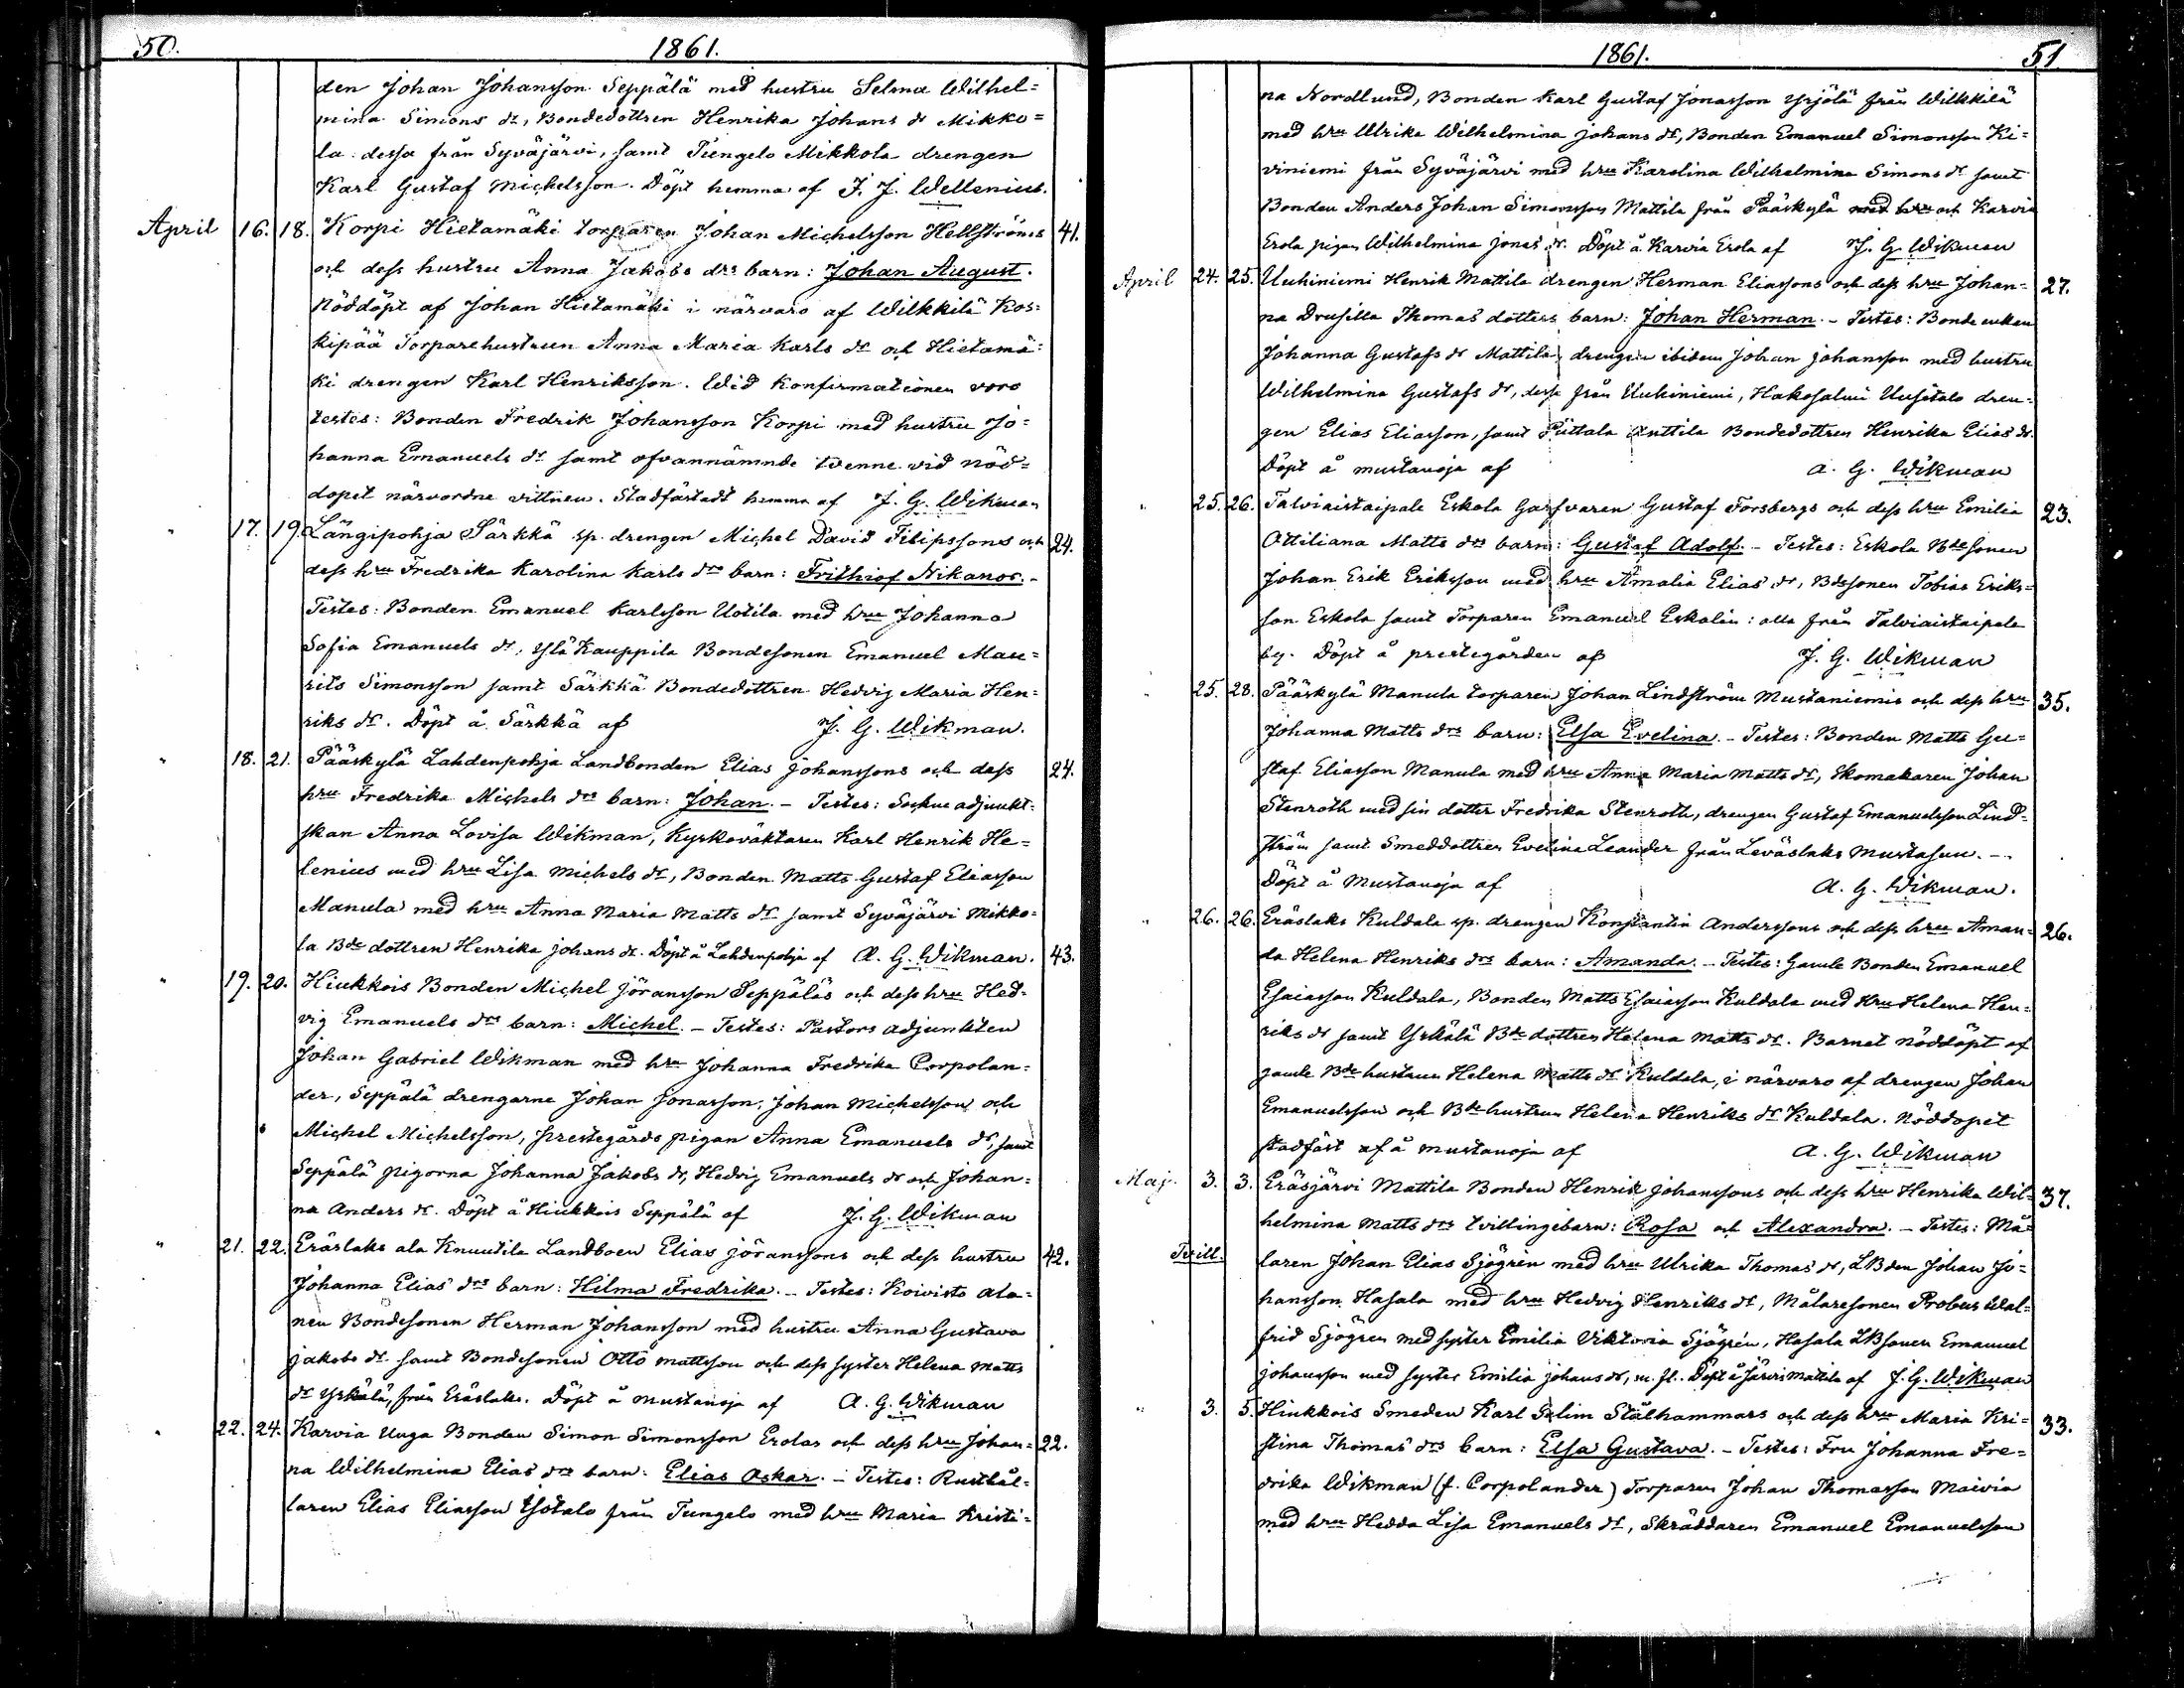 50. 1861.
den Johan Johansson Seppälä med hustru Selma Wilhel=
mina Simons dr, Bondedottren Henrika Johans dr Mikko=
la: dessa från Syväjärvi, samt Tungelo Mikkola drengen
Karl Gustaf Michelsson. Döpt hemma af J. J. Wellenius.
April 16. 18. Korpi Hietamäki torparen Johan Michelsson Hellströms 41.
och dess hustru Anna Jakobs drs barn: Johan August.
Nöddöpt af Johan Hietamäki i närvaro af Wilkkilä Kos=
kipää Torparehustrun Anna Maria Karls dr och Hietamä=
ki drengen Karl Henriksson. Wid Konfirmationen voro
testes: Bonden Fredrik Johansson Korpi med hustru Jo=
hanna Emanuels dr samt ofvannämnde tvenne vid nöd=
dopet närvordne vittnen. Stadfästadt hemma af J. G. Wikman
" 17. 19. Längipohja Särkkä sp. drengen Michel David Filipssons och 24.
dess hru Fredrika Karolina Karls drs barn: Frithiof Nikanor. -
Testes: Bonden Emanuel Karlsson Uotila med hru Johanna
Sofia Emanuels dr, Ylä Kauppila Bondesonen Emanuel Mau=
rits Simonsson samt Särkkä Bondedottren Hedvig Maria Hen=
riks dr. Döpt å Särkkä af J. G. Wikman.
" 18. 21. Pääskylä Lahdenpohja Landbonden Elias Johanssons och dess 24.
hru Fredrika Michels drs barn: Johan. - Testes: Sockne adjunkt=
skan Anna Lovisa Wikman, Kyrkovaktaren Karl Henrik He=
lenius med hru Lisa Michels dr, Bonden Matts Gustaf Eliasson
Manula med hru Anna Maria Matts dr samt Syväjärvi Mikko=
la Bde dottren Henrika Johans dr. Döpt å Lahdenpohja af A. G. Wikman. 43.
" 19. 20. Hiukkois Bonden Michel Jöransson Seppäläs och dess hru Hed=
vig Emanuels drs barn: Michel. - Testes: Pastors adjunkten
Johan Gabriel Wikman med hru Johanna Fredrika Corpolan=
der, Seppälä drengarne Johan Jonasson, Johan Michelsson och
Michel Michelsson, prestegårds pigan Anna Emanuels dr, samt
Seppälä pigorna Johanna Jakobs dr, Hedvig Emanuels dr och Johan=
na Anders dr. Döpt å Hiukkois Seppälä af J. G. Wikman
" 21. 22. Eräslaks ala Knuutila Landboen Elias Jöranssons och dess hustru 42.
Johanna Elias drs barn: Hilma Fredrika. - Testes: Koivisto ala=
nen Bondesonen Herman Johansson med hustru Anna Gustava
Jakobs dr samt Bondesonen Otto Mattsson och dess syster Helena Matts
dr Yrkälä, från Eräslaks. Döpt å Mustanoja af A. G. Wikman
" 22. 24. Karvia Unga Bonden Simon Simonsson Erolas och dess hru Johan= 22.
na Wilhelmina Elias drs barn: Elias Oskar. - Testes: Rusthål=
laren Elias Eliasson Isotalo från Tungelo med hru Maria Kristi=
1861. 51
na Nordlund, Bonden Karl Gustaf Jonasson Yrjölä från Wilkkilä
med hru Ulrika Wilhelmina Johans dr, Bonden Emanuel Simonsson Ki=
viniemi från Syväjärvi med hru Karolina Wilhelmina Simons dr samt
Bonden Anders Johan Simonsson Mattila från Pääskylä med hru och Karvia
Erola pigan Wilhelmina Jonas dr. Döpt å Karvia Erola af J. G. Wikman
April 24. 25. Uuhiniemi Henrik Mattila drengen Herman Eliassons och dess hru Johan= 27.
na Drusilla Thomas dotters barn: Johan Herman. - Testes: Bonde enkan
Johanna Gustafs dr Mattila, drengen ibidem Johan Johansson med hustru
Wilhelmina Gustafs dr, dessa från Uuhiniemi, Hakosalmi Uusitalo dren=
gen Elias Eliasson, samt Püttala Anttila Bondedottren Henrika Elias dr.
Döpt å Mustanoja af A. G. Wikman
" 25. 26. Talviaistaipale Eskola Garfvaren Gustaf Forsbergs och dess hru Emilia 23.
Ottiliana Matts drs barn: Gustaf Adolf. - Testes: Eskola Bdesonen
Johan Erik Eriksson med hru Amalia Elias dr, Bdesonen Tobias Eriks=
son Eskola samt Torparen Emanuel Eskolin: alla från Talviaistaipale
by. Döpt å prestegården af J. G. Wikman
" 25. 28. Pääskylä Manula torparen Johan Lindström Mustaniemis och dess hru 35.
Johanna Matts drs barn: Elsa Evelina. - Testes: Bonden Matts Gu=
staf Eliasson Manula med hru Anna Maria Matts dr, Skomakaren Johan
Stenroth med sin dotter Fredrika Stenroth, drengen Gustaf Emanuelsson Lind=
ström samt Smeddottren Evelina Leander från Leväslaks Mustasuu. -
Döpt å Mustanoja af A. G. Wikman.
" 26. 26. Eräslaks Kuldala sp. drengen Konstantin Anderssons och dess hru Aman= 26.
da Helena Henriks drs barn: Amanda. - Testes: Gamle Bonden Emanuel
Esaiasson Kuldala, Bonden Matts Esaiasson Kuldala med hru Helena Hen=
riks dr samt Yrkälä Bde dottren Helena Matts dr. Barnet nöddöpt af
gamle Bdehustrun Helena Matts dr Kuldala, i närvaro af drengen Johan
Emanuelsson och Bdehustrun Helena Henriks dr Kuldala. Nöddopet
stadfäst af å Mustanoja af A. G. Wikman
Maj. 3. 3. Eräsjärvi Mattila Bonden Henrik Johanssons och dess hru Henrika Wil= 37.
helmina Matts drs tvillingebarn: Rosa och Alexandra. - Testes: Må=
Tvill. laren Johan Elias Sjögrén med hru Ulrika Thomas dr, LBden Johan Jo=
hansson Hasala med hru Hedvig Henriks dr, Målaresonen Probus Wal=
frid Sjögren med syster Emilia Viktoria Sjögrén, Hasala LBsonen Emanuel
Johansson med syster Emilia Johans dr, m. fl. Döpt å Järvimattila af J. G. Wikman
" 3. 5. Hiukkois Smeden Karl Selim Stålhammars och dess hru Maria Kri= 33.
stina Thomas drs barn: Elsa Gustava. - Testes: Fru Johanna Fre=
drika Wikman (f. Corpolander) Torparen Johan Thomasson Maivia
med hru Hedda Lisa Emanuels dr, Skräddaren Emanuel Emanuelsson